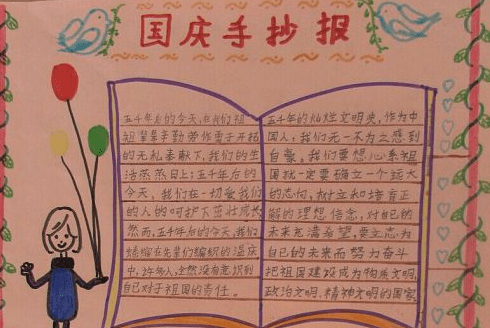 国庆手抄报
五千年后的今天,在我们祖
祖辈辈辛勤劳作勇于开拓
的无私奉献下,我们的生
活蒸蒸日上;五千年后的
今天,我们在一切爱我们
的人的呵护下茁壮成长
然而,五千年后的今天,我们
蜷缩在先辈们编织的温床
中,许多人,全然没有意识到
自己对于祖国的责任。
五千年的灿烂文明史,作为中
国人,我们无一不为之感到
自豪。我们要想心系祖
国就一定要确立一个远大
的志向,树立和培育正
确的理想信念,对自己的
未来充满希望,要立志为
自己的未来而努力奋斗
把祖国建设成为物质文明,
政治文明、精神文明的国家